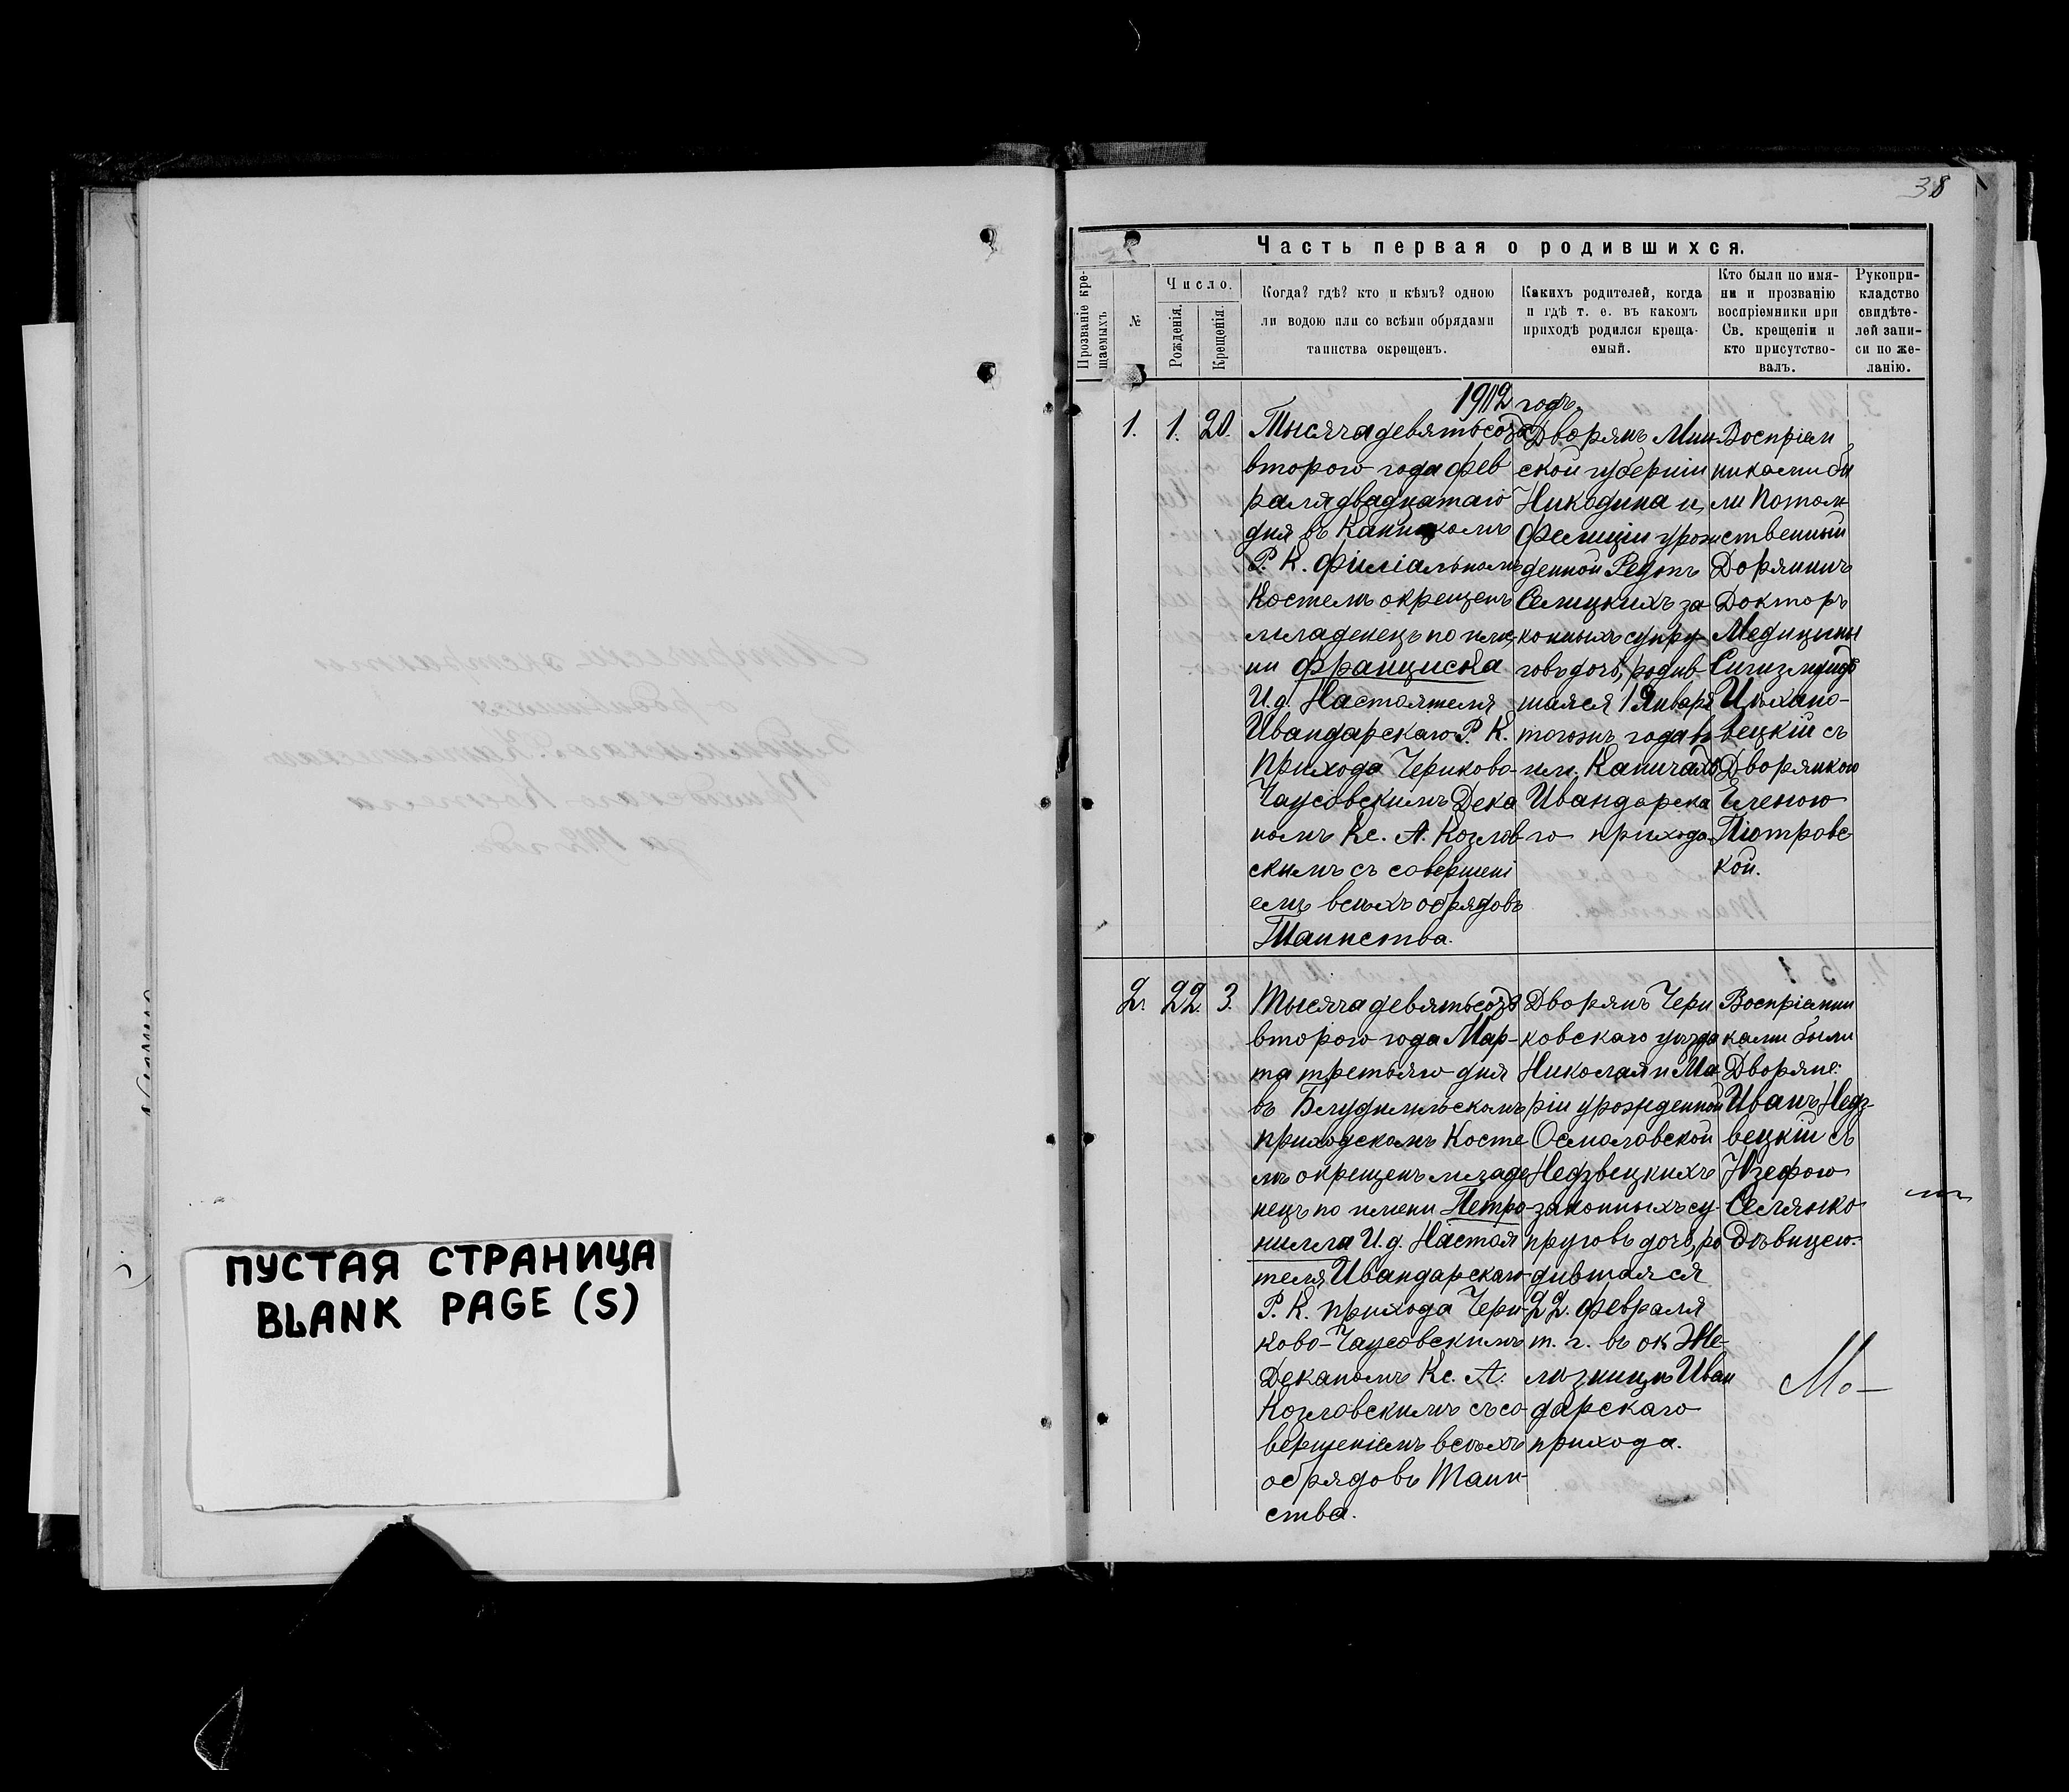 38
Часть первая о родившихся.
Прозваніе кре-
щаемыхъ
№
Число.
Рожденія.
Крещенія.
Когда? гдѣ? кто и кѣмъ? одною
ли водою или со всѣми обрядами
таинства окрещенъ.
Какихъ родителей, когда
и гдѣ т. е. въ какомъ
приходѣ родился креща-
емый.
Кто были по имя-
ни и прозванію
воспріемники при
Св. крещеніи и
кто присутство-
валъ.
Рукопри-
кладство
свидѣте-
лей запи-
си по же-
ланію.
1902 годъ.
1.
1.
20.
Тысяча девятьсотъ
второго года фев
раля двадцатаго
дня въ
Р. К. Филіальномъ
Костелѣ окрещенъ
младенецъ по име,
ни Франциска
И.д. Настоятеля
Ивандарскаго Р. К.
прихода Чериково-
Чаусовскимъ Дека
номъ Кс. А. Козлов
скимъ съ совершені
емъ всѣхъ обрядовъ
Таинства.
Дворянъ Мин
ской губерніи
Никодима и
Фелиціи урож
денной Редзкъ
Селицкихъ за-
конныхъ супру-
говъ дочь, родив-
шаяся 1 Января
тогожъ года въ
им. Каничахъ
Ивандарска
го прихода
Воспріем
никами бы
ли Потом
ственный
Дорянинъ
Докторъ
Медицины
Сигизмундъ
Цѣхано-
вецкій съ
Дворянкою
Еленою
Піотровс
кой.
2.
22.
3.
Тысяча девятьсотъ
второго года Мар-
та третьяго дня
въ
приходскомъ Косте
лѣ окрещенъ младе
нецъ по имени Петро-
нилла И.д. Настоя
теля Ивандарскаго
Р. К. прихода Чери-
ково-Чаусовскимъ
Деканомъ Кс. А.
Козловскимъ съ со-
вершеніемъ всѣхъ
обрядовъ Таин-
ства.
Дворянъ Чери
ковскаго уѣзда
Николая и Ма
ріи урожденной
Осмоловской
Недзвецкихъ
законныхъ су-
пруговъ дочь, ро
дившаяся
22. февраля
т. г. въ ок. Же-
лизницѣ Иван
дарскаго
прихода.
Воспріемни
ками были
Дворяне:
Иванъ Недз-
вецкій съ
Юзефою
Селянко
Дѣвицею.
М.–
ПУСТАЯ СТРАНИЦА
BLANK PAGE (S)